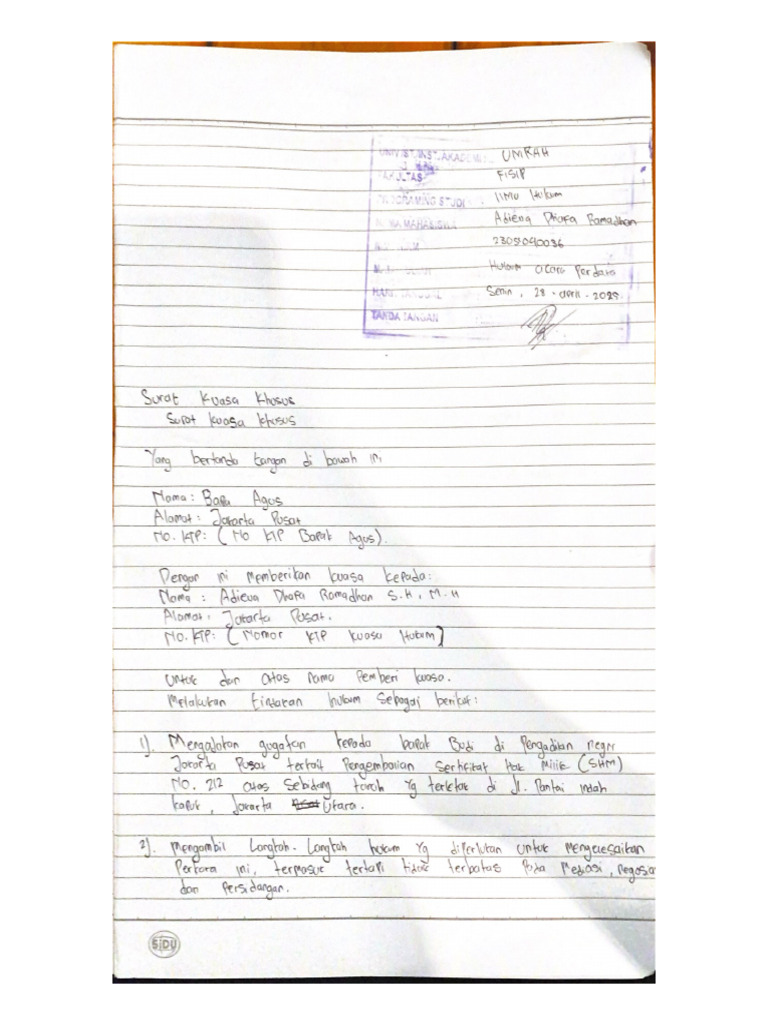 UNIV/ST/INST/AKADEMI UMRAH
FAKULTAS FISIP
PROGRAMING STUDI Ilmu Hukum
NAMA MAHASISWA Adieva Dhafa Ramadhan
2305040036
Hukum Acara Perdata
HARI/TANGGAL Senin, 28 - April - 2025
TANDA TANGAN
Surat Kuasa Khusus
Surat kuasa khusus
Yang bertanda tangan di bawah ini
Nama: Bapa Agus
Alamat: Jakarta Pusat
No. KTP: (No KTP Bapak Agus).
Dengan ini memberikan kuasa kepada:
Nama : Adieva Dhafa Ramadhan S.H, M.H
Alamat: Jakarta Pusat.
No. KTP: [Nomor KTP Kuasa Hukum]
Untuk dan atas nama Pemberi kuasa.
Melakukan tindakan hukum sebagai berikut:
1). Mengajukan gugatan kepada bapak Budi di Pengadilan negri
Jakarta Pusat terkait Pengembalian Sertifikat Hak Milik (SHM)
No. 212 atas sebidang tanah yg terletak di Jl. Pantai indah
kapuk, Jakarta Utara.
2). Mengambil Langkah-Langkah hukum yg diperlukan untuk menyelesaikan
Perkara ini, termasuk tetapi tidak terbatas Pada Mediasi, negosia
dan Persidangan.
SIDU